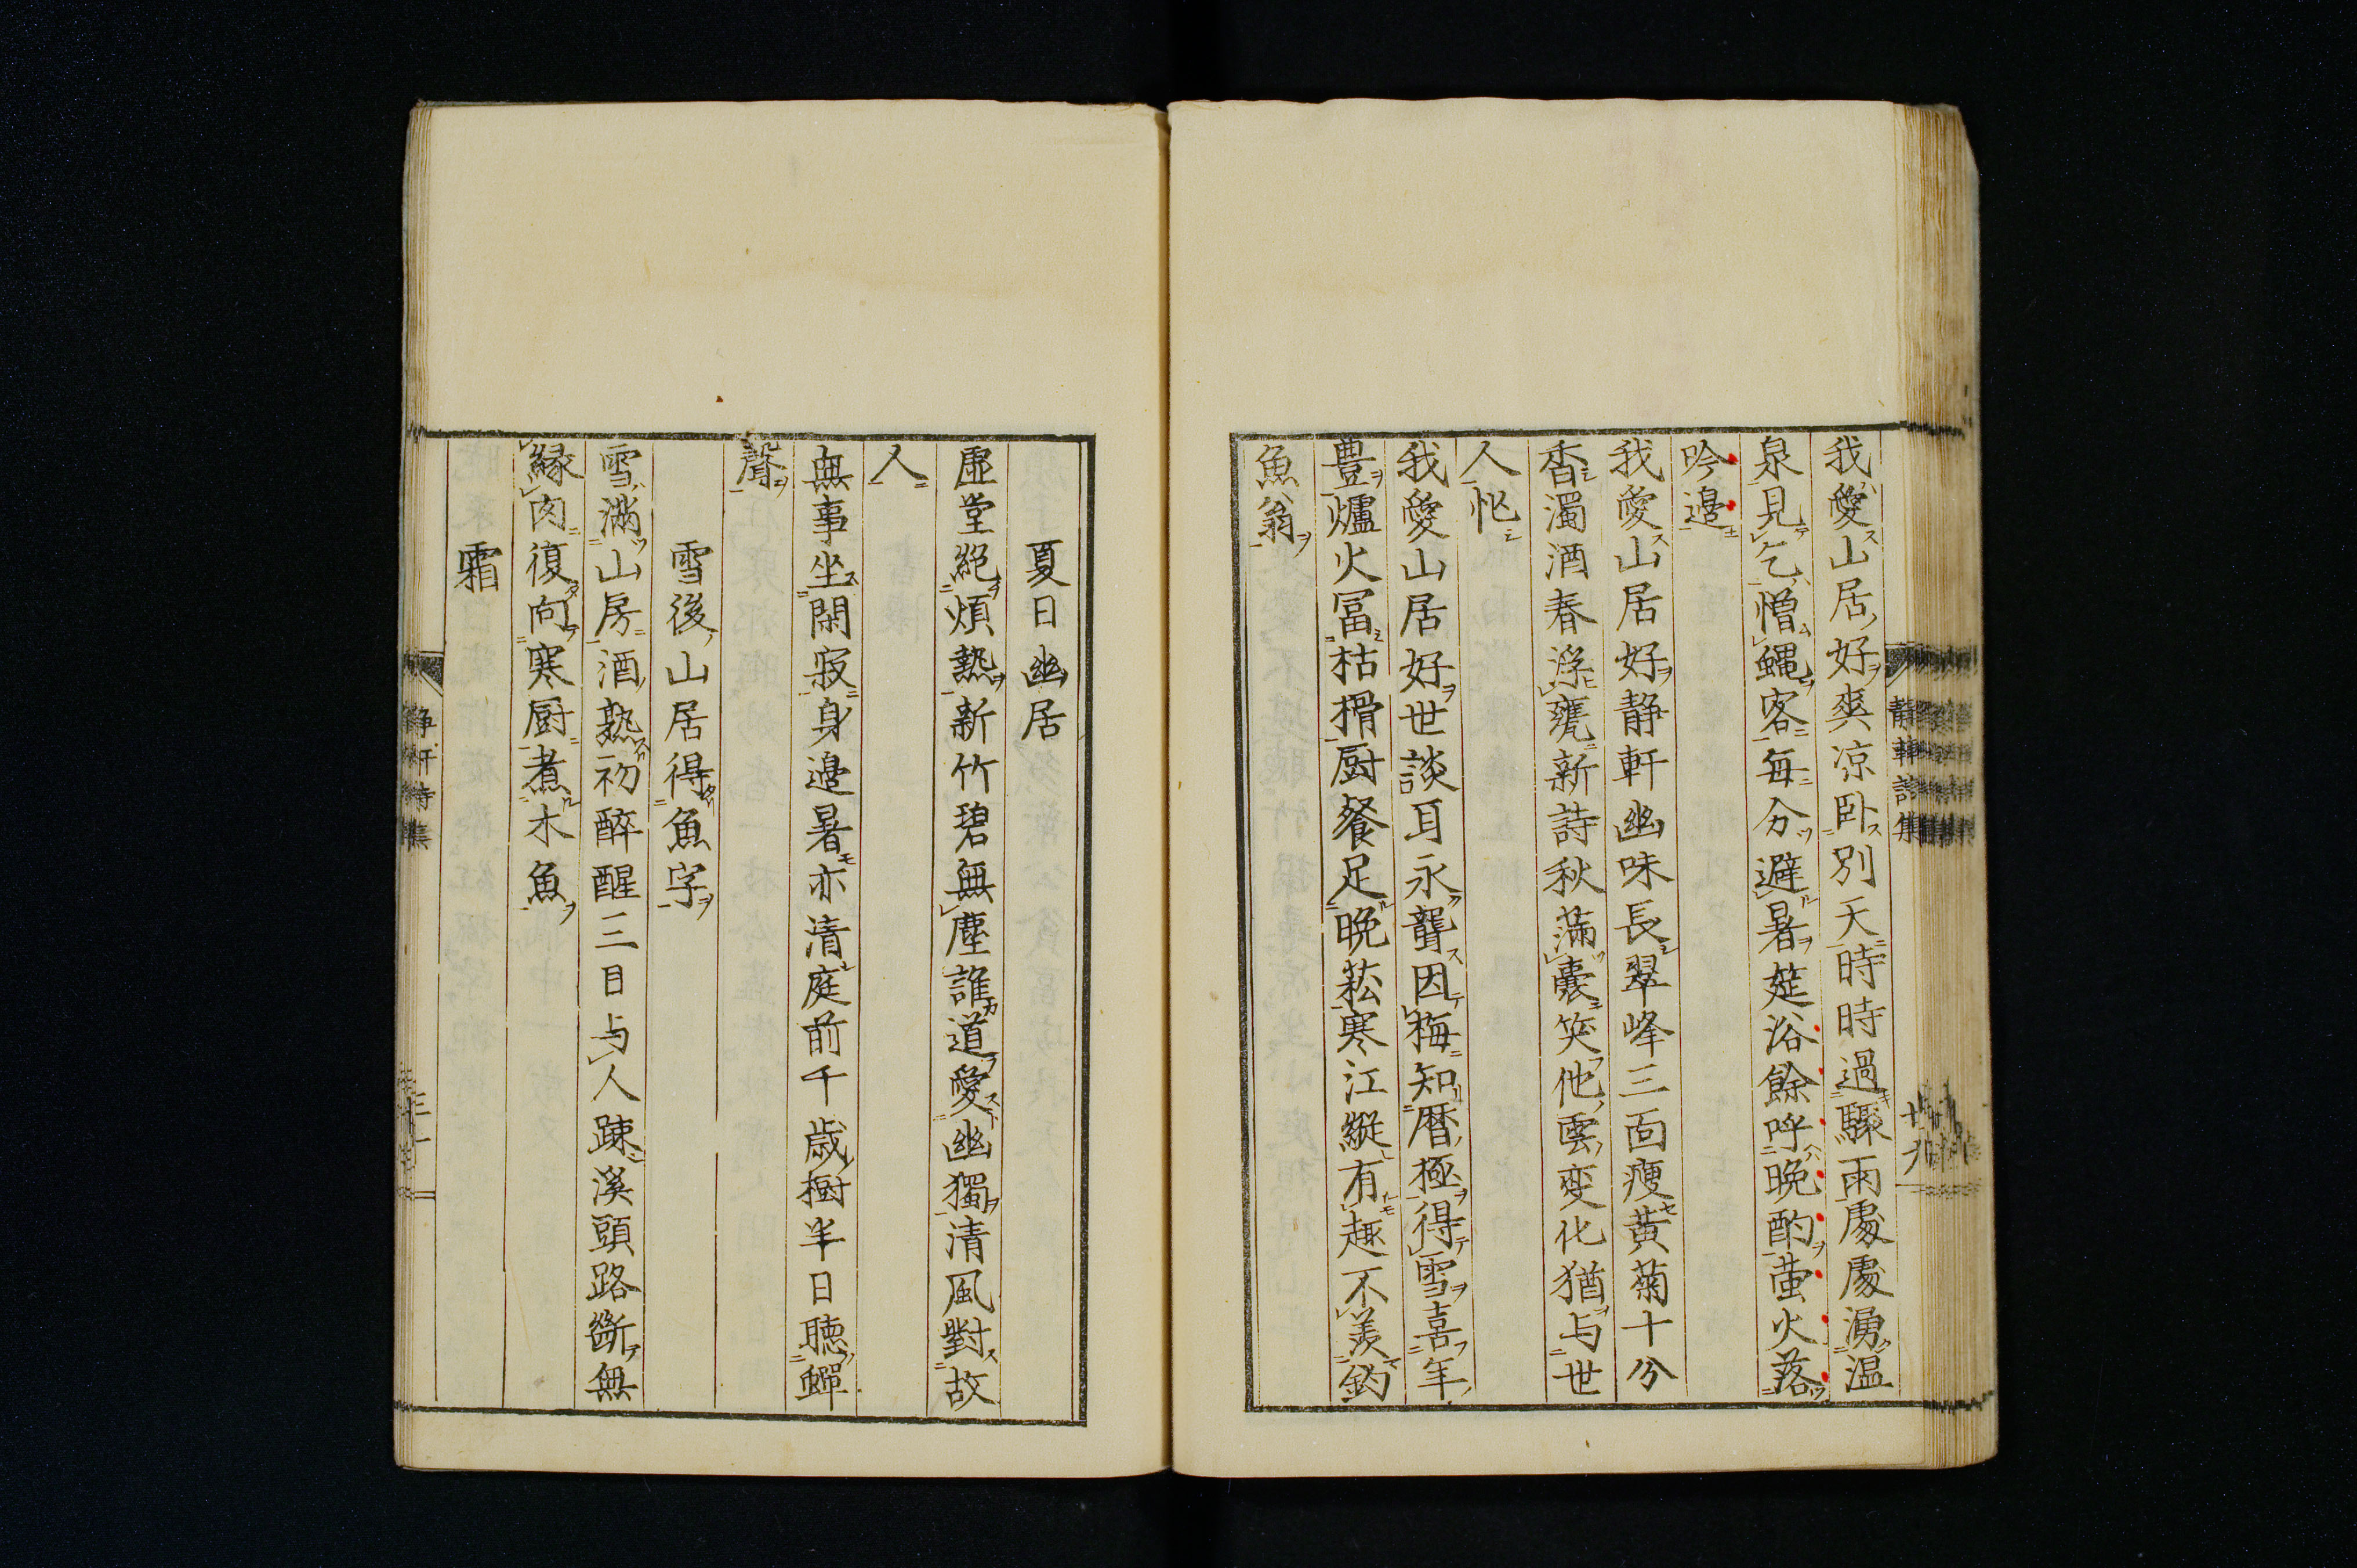 我愛山居好爽凉卧別天時時過驟雨處處湧温
泉見乞憎蠅客每分避暑筵浴餘呼晚酌萤火落
吟邊
我愛山居好静軒幽味長翠峰三面瘦黄菊十分
香濁酒春浮甕新詩秋滿囊笑他雲变化猶与世
人忙
我愛山居好世談耳永聾因梅知暦極得雪喜年
豊爐火冨枯榾厨餐足晚菘寒江縱有趣不羡釣
魚翁
静軒詩集
十九
夏日幽居
虚堂絕煩熱新竹碧無塵誰道愛幽獨清風對故
人
無事坐閑寂身邊暑亦清庭前千歳樹半日聴蟬
聲
雪後山居得魚字
雪滿山房酒熟初醉醒三日与人踈溪頭路斷無
緣肉復向寒厨煮木魚
霜